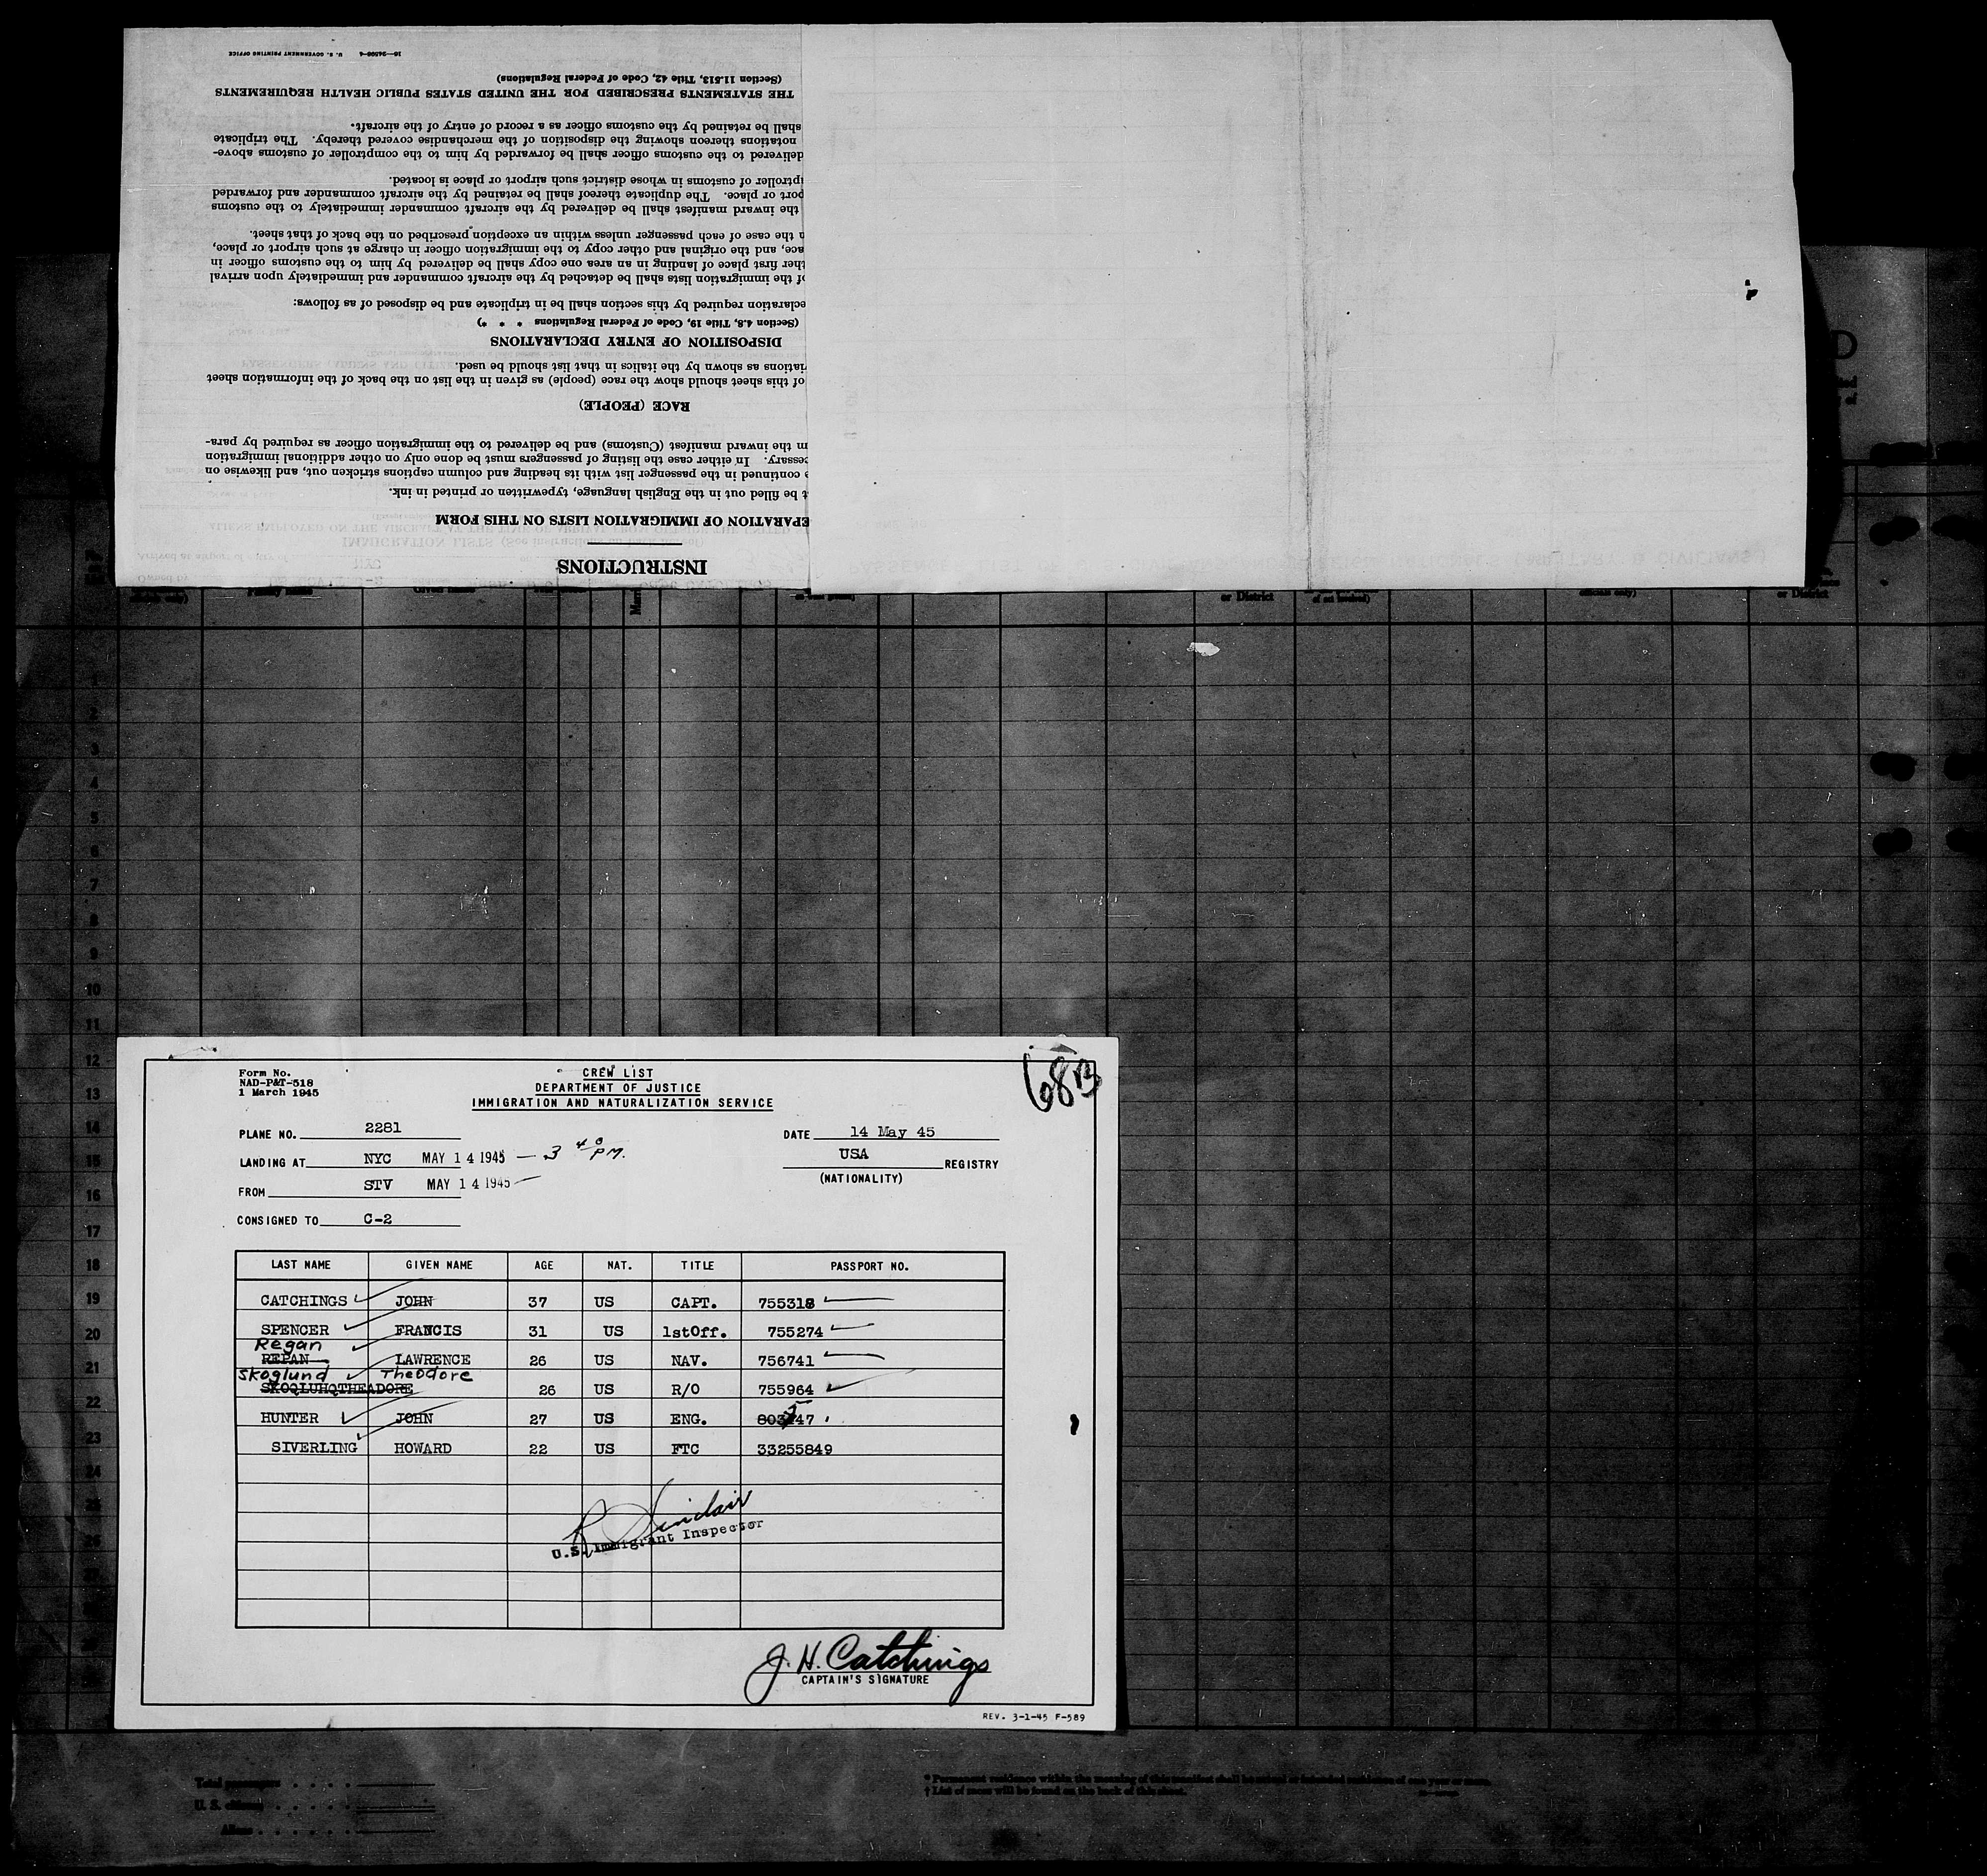 INSTRUCTIONS
EPARATION OF IMMIGRATION LISTS ON THIS FORM
t be filled out in the English language, typewritten or printed in ink.
e continued in the passenger list with its heading and column captions stricken out, and likewise on
cessary. In either case the listing of passengers must be done only on other additional immigration
m the inward manifest (Customs) and be delivered to the immigration officer as required by para-
RACE (PEOPLE)
of this sheet should show the race (people) as given in the list on the back of the information sheet
viations as shown by the italics in that list should be used.
DISPOSITION OF ENTRY DECLARATIONS
(Section 4.8, Title 19, Code of Federal Regulations * * *)
eclaration required by this section shall be in triplicate and be disposed of as follows:
of the immigration lists shall be detached by the aircraft commander and immediately upon arrival
ther first place of landing in an area one copy shall be delivered by him to the customs officer in
ace, and the original and other copy to the immigration officer in charge at such airport or place,
n the case of each passenger unless within an exception prescribed on the back of that sheet.
the inward manifest shall be delivered by the aircraft commander immediately to the customs
port or place. The duplicate thereof shall be retained by the aircraft commander and forwarded
ptroller of customs in whose district such airport or place is located.
delivered to the customs officer shall be forwarded by him to the comptroller of customs above-
notations thereon showing the disposition of the merchandise covered thereby. The triplicate
shall be retained by the customs officer as a record of entry of the aircraft.
THE STATEMENTS PRESCRIBED FOR THE UNITED STATES PUBLIC HEALTH REQUIREMENTS
(Section 11.513, Title 42, Code of Federal Regulations)
U. S. GOVERNMENT PRINTING OFFICE 16—24598-4
or District
officials only)
or District
1
2
3
4
5
6
7
8
9
10
11
12
13
14
15
16
17
18
19
20
21
22
23
24
Form No.
NAD-P&T-518
1 March 1945
CREW LIST
DEPARTMENT OF JUSTICE
IMMIGRATION AND NATURALIZATION SERVICE
68B
PLANE NO. 2281
DATE 14 May 45
LANDING AT NYC MAY 14 1945 — 3 40 PM.
USA REGISTRY
(NATIONALITY)
FROM STV MAY 14 1945
CONSIGNED TO C-2
LAST NAME GIVEN NAME AGE NAT. TITLE PASSPORT NO.
CATCHINGS JOHN 37 US CAPT. 755318
SPENCER FRANCIS 31 US 1stOff. 755274
Regan
REPAN LAWRENCE 26 US NAV. 756741
Skoglund Theodore
SKOQLUHQTHEADORE 26 US R/O 755964
HUNTER JOHN 27 US ENG. 803747
SIVERLING HOWARD 22 US FTC 33255849
R Sinclair
U.S. Immigrant Inspector
J. H. Catchings
CAPTAIN'S SIGNATURE
REV. 3-1-45 F-589
Total passengers
U. S. citizens
Aliens
* Permanent residence within the meaning of this manifest shall be actual or intended residence of one year or more.
† List of races will be found on the back of this sheet.